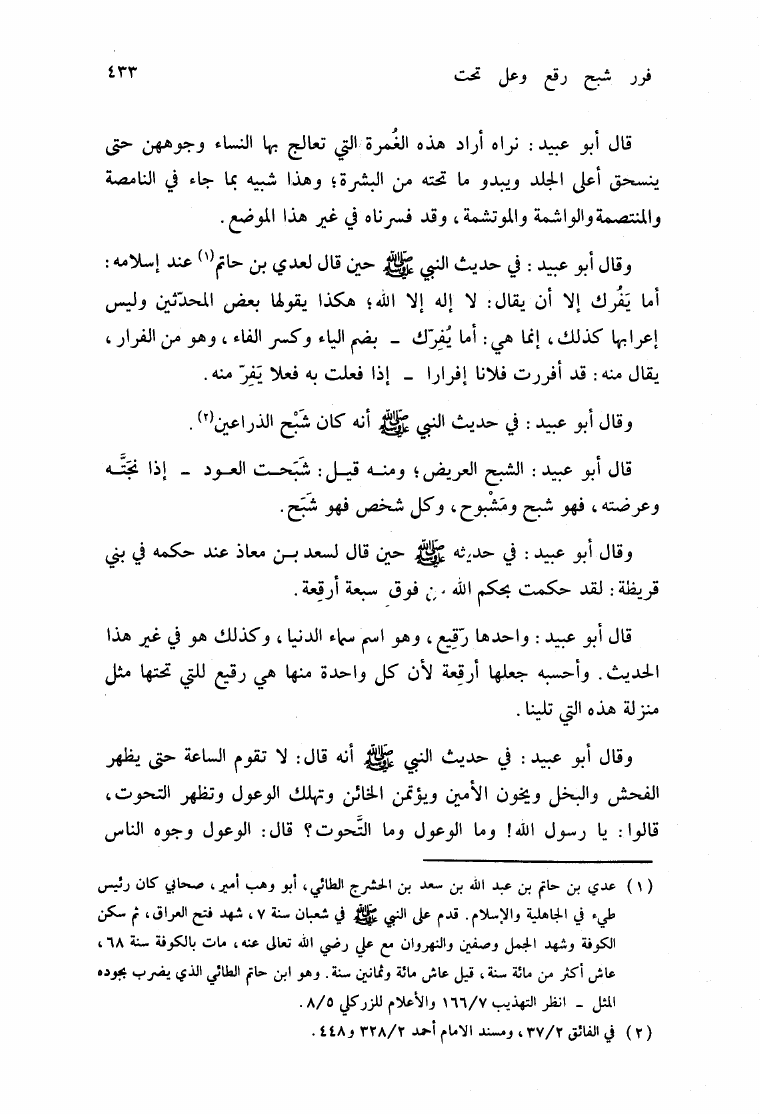 فرر شبح رقع وعل تحت ٤٣٣
قال أبو عبيد : نراه أراد هذه الغُمرة التي تعالج بها النساء وجوههن حتى
ينسحق أعلى الجلد ويبدو ما تحته من البشرة؛ وهذا شبيه بما جاء في النامصة
والمنتصمة والواشمة والموتشمة ، وقد فسرناه في غير هذا الموضع .
وقال أبو عبيد : في حديث النبي ﷺ حين قال لعدي بن حاتم(١) عند إسلامه :
أما يَفُرك إلا أن يقال : لا إله إلا الله؛ هكذا يقولها بعض المحدّثين وليس
إعرابها كذلك ، إنما هي : أما يُفِرّك - بضم الياء وكسر الفاء ، وهو من الفرار ،
يقال منه : قد أفررت فلانا إفرارا - إذا فعلت به فعلا يَفِرّ منه .
وقال أبو عبيد : في حديث النبي ﷺ أنه كان شَبْح الذراعين(٢) .
قال أبو عبيد : الشبح العريض؛ ومنه قيل : شَبَحت العود - إذا نحَتَّه
وعرضته ، فهو شبح ومَشْبوح، وكل شخص فهو شَبَح.
وقال أبو عبيد : في حديثه ﷺ حين قال لسعد بن معاذ عند حكمه في بني
قريظة : لقد حكمت بحكم الله من فوق سبعة أرقِعة .
قال أبو عبيد : واحدها رَقِيع ، وهو اسم سماء الدنيا ، وكذلك هو في غير هذا
الحديث . وأحسبه جعلها أرقِعة لأن كل واحدة منها هي رقيع للتي تحتها مثل
منزلة هذه التي تلينا .
وقال أبو عبيد : في حديث النبي ﷺ أنه قال : لا تقوم الساعة حتى يظهر
الفحش والبخل ويخون الأمين ويؤتمن الخائن وتهلك الوعول وتظهر التحوت ،
قالوا : يا رسول الله! وما الوعول وما التَّحوت؟ قال : الوعول وجوه الناس
(١) عدي بن حاتم بن عبد الله بن سعد بن الحشرج الطائي ، أبو وهب أمير ، صحابي كان رئيس
طيء في الجاهلية والإسلام . قدم على النبي ﷺ في شعبان سنة ٧ ، شهد فتح العراق ، ثم سكن
الكوفة وشهد الجمل وصفين والنهروان مع علي رضي الله تعالى عنه ، مات بالكوفة سنة ٦٨ ،
عاش أكثر من مائة سنة ، قيل عاش مائة وثمانين سنة . وهو ابن حاتم الطائي الذي يضرب بجوده
المثل - انظر التهذيب ١٦٦/٧ والأعلام للزركلي ٨/٥ .
(٢) في الفائق ٣٧/٢ ، ومسند الامام أحمد ٣٢٨/٢ و٤٤٨ .